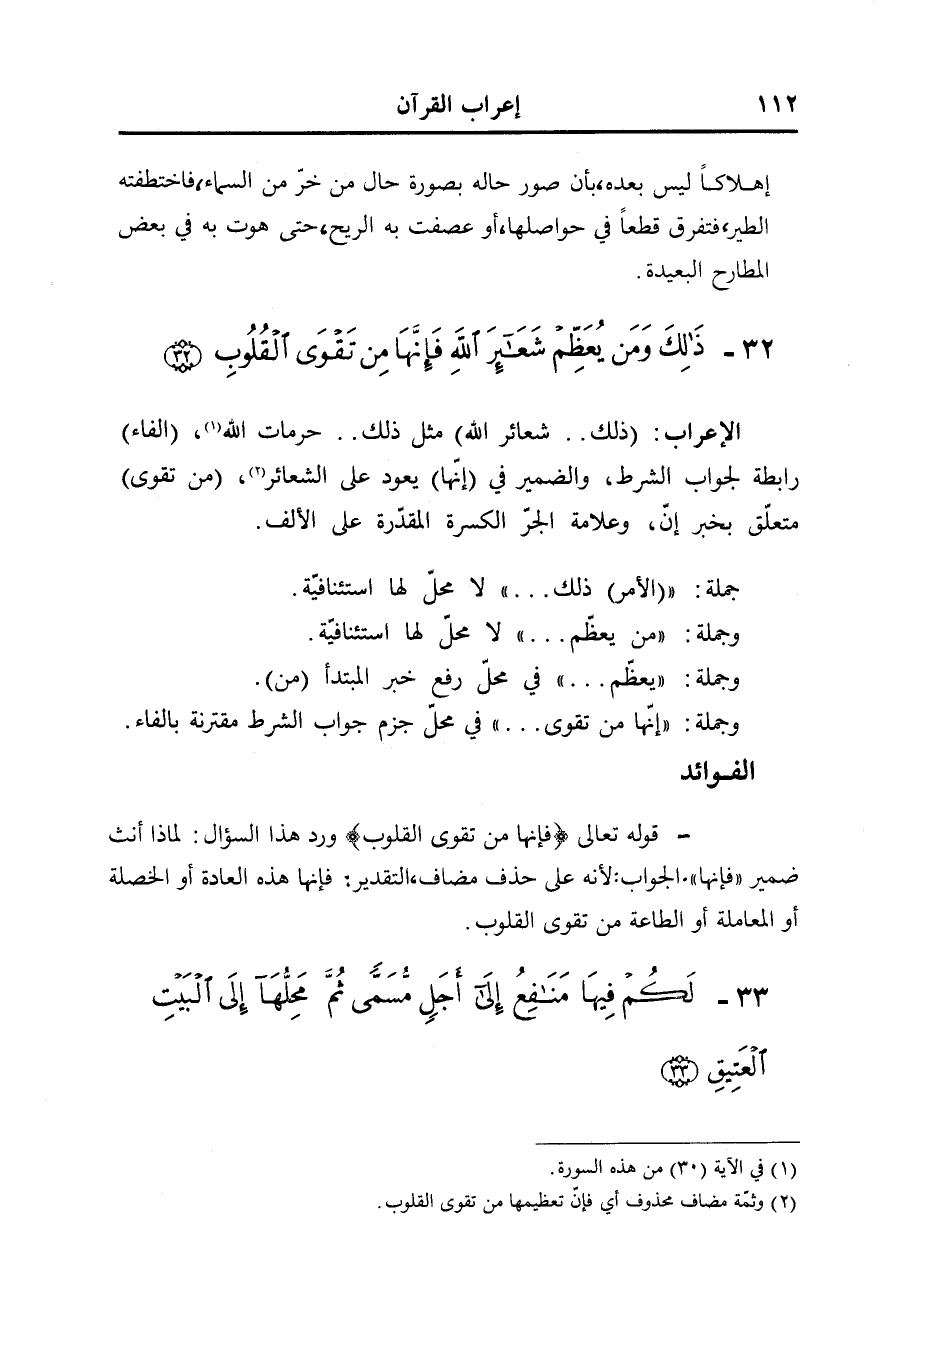 ١١٢ إعراب القرآن
إهـلاكـاً ليس بعده،بأن صور حاله بصورة حال من خرّ من السماء،فاختطفته
الطير،فتفرق قطعاً في حواصلها،أو عصفت به الريح،حتى هوت به في بعض
المطارح البعيدة .
٣٢ ـ ذَٰلِكَ وَمَن يُعَظِّمْ شَعَٰٓئِرَ ٱللَّهِ فَإِنَّهَا مِن تَقْوَى ٱلْقُلُوبِ ﴿٣٢﴾
الإعراب : (ذلك . . شعائر الله) مثل ذلك . . حرمات الله(١)، (الفاء)
رابطة لجواب الشرط، والضمير في (إنّها) يعود على الشعائر(٢)، (من تقوى)
متعلّق بخبر إنّ، وعلامة الجرّ الكسرة المقدّرة على الألف .
جملة : «(الأمر) ذلك . . . » لا محلّ لها استئنافيّة .
وجملة : «من يعظّم . . . » لا محلّ لها استئنافيّة .
وجملة : «يعظّم . . . » في محلّ رفع خبر المبتدأ (من) .
وجملة : «إنّها من تقوى . . . » في محلّ جزم جواب الشرط مقترنة بالفاء .
الفـوائد
ـ قوله تعالى ﴿فإنها من تقوى القلوب﴾ ورد هذا السؤال : لماذا أنث
ضمير «فإنها»،الجواب:لأنه على حذف مضاف،التقدير: فإنها هذه العادة أو الخصلة
أو المعاملة أو الطاعة من تقوى القلوب .
٣٣ ـ لَكُمْ فِيهَا مَنَٰفِعُ إِلَىٰٓ أَجَلٍ مُّسَمًّى ثُمَّ مَحِلُّهَآ إِلَى ٱلْبَيْتِ
ٱلْعَتِيقِ ﴿٣٣﴾
(١) في الآية (٣٠) من هذه السورة .
(٢) وثمّة مضاف محذوف أي فإنّ تعظيمها من تقوى القلوب .